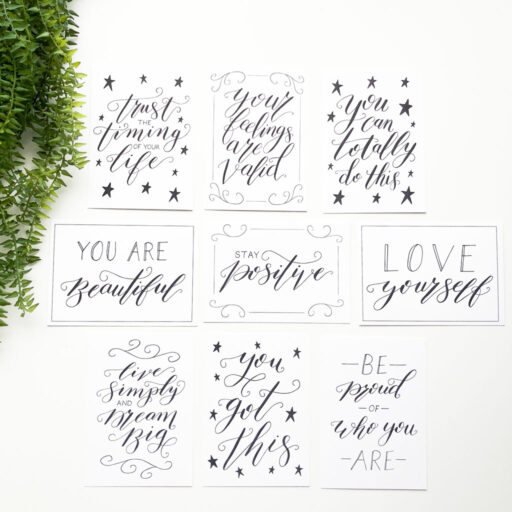 trust
THE
timing
OF YOUR
life
your
feelings
are
valid
you
can
totally
do this
YOU ARE
Beautiful
STAY
positive
LOVE
yourself
live
simply
AND
Dream
Big
you
got
this
BE
proud
OF
who you
ARE